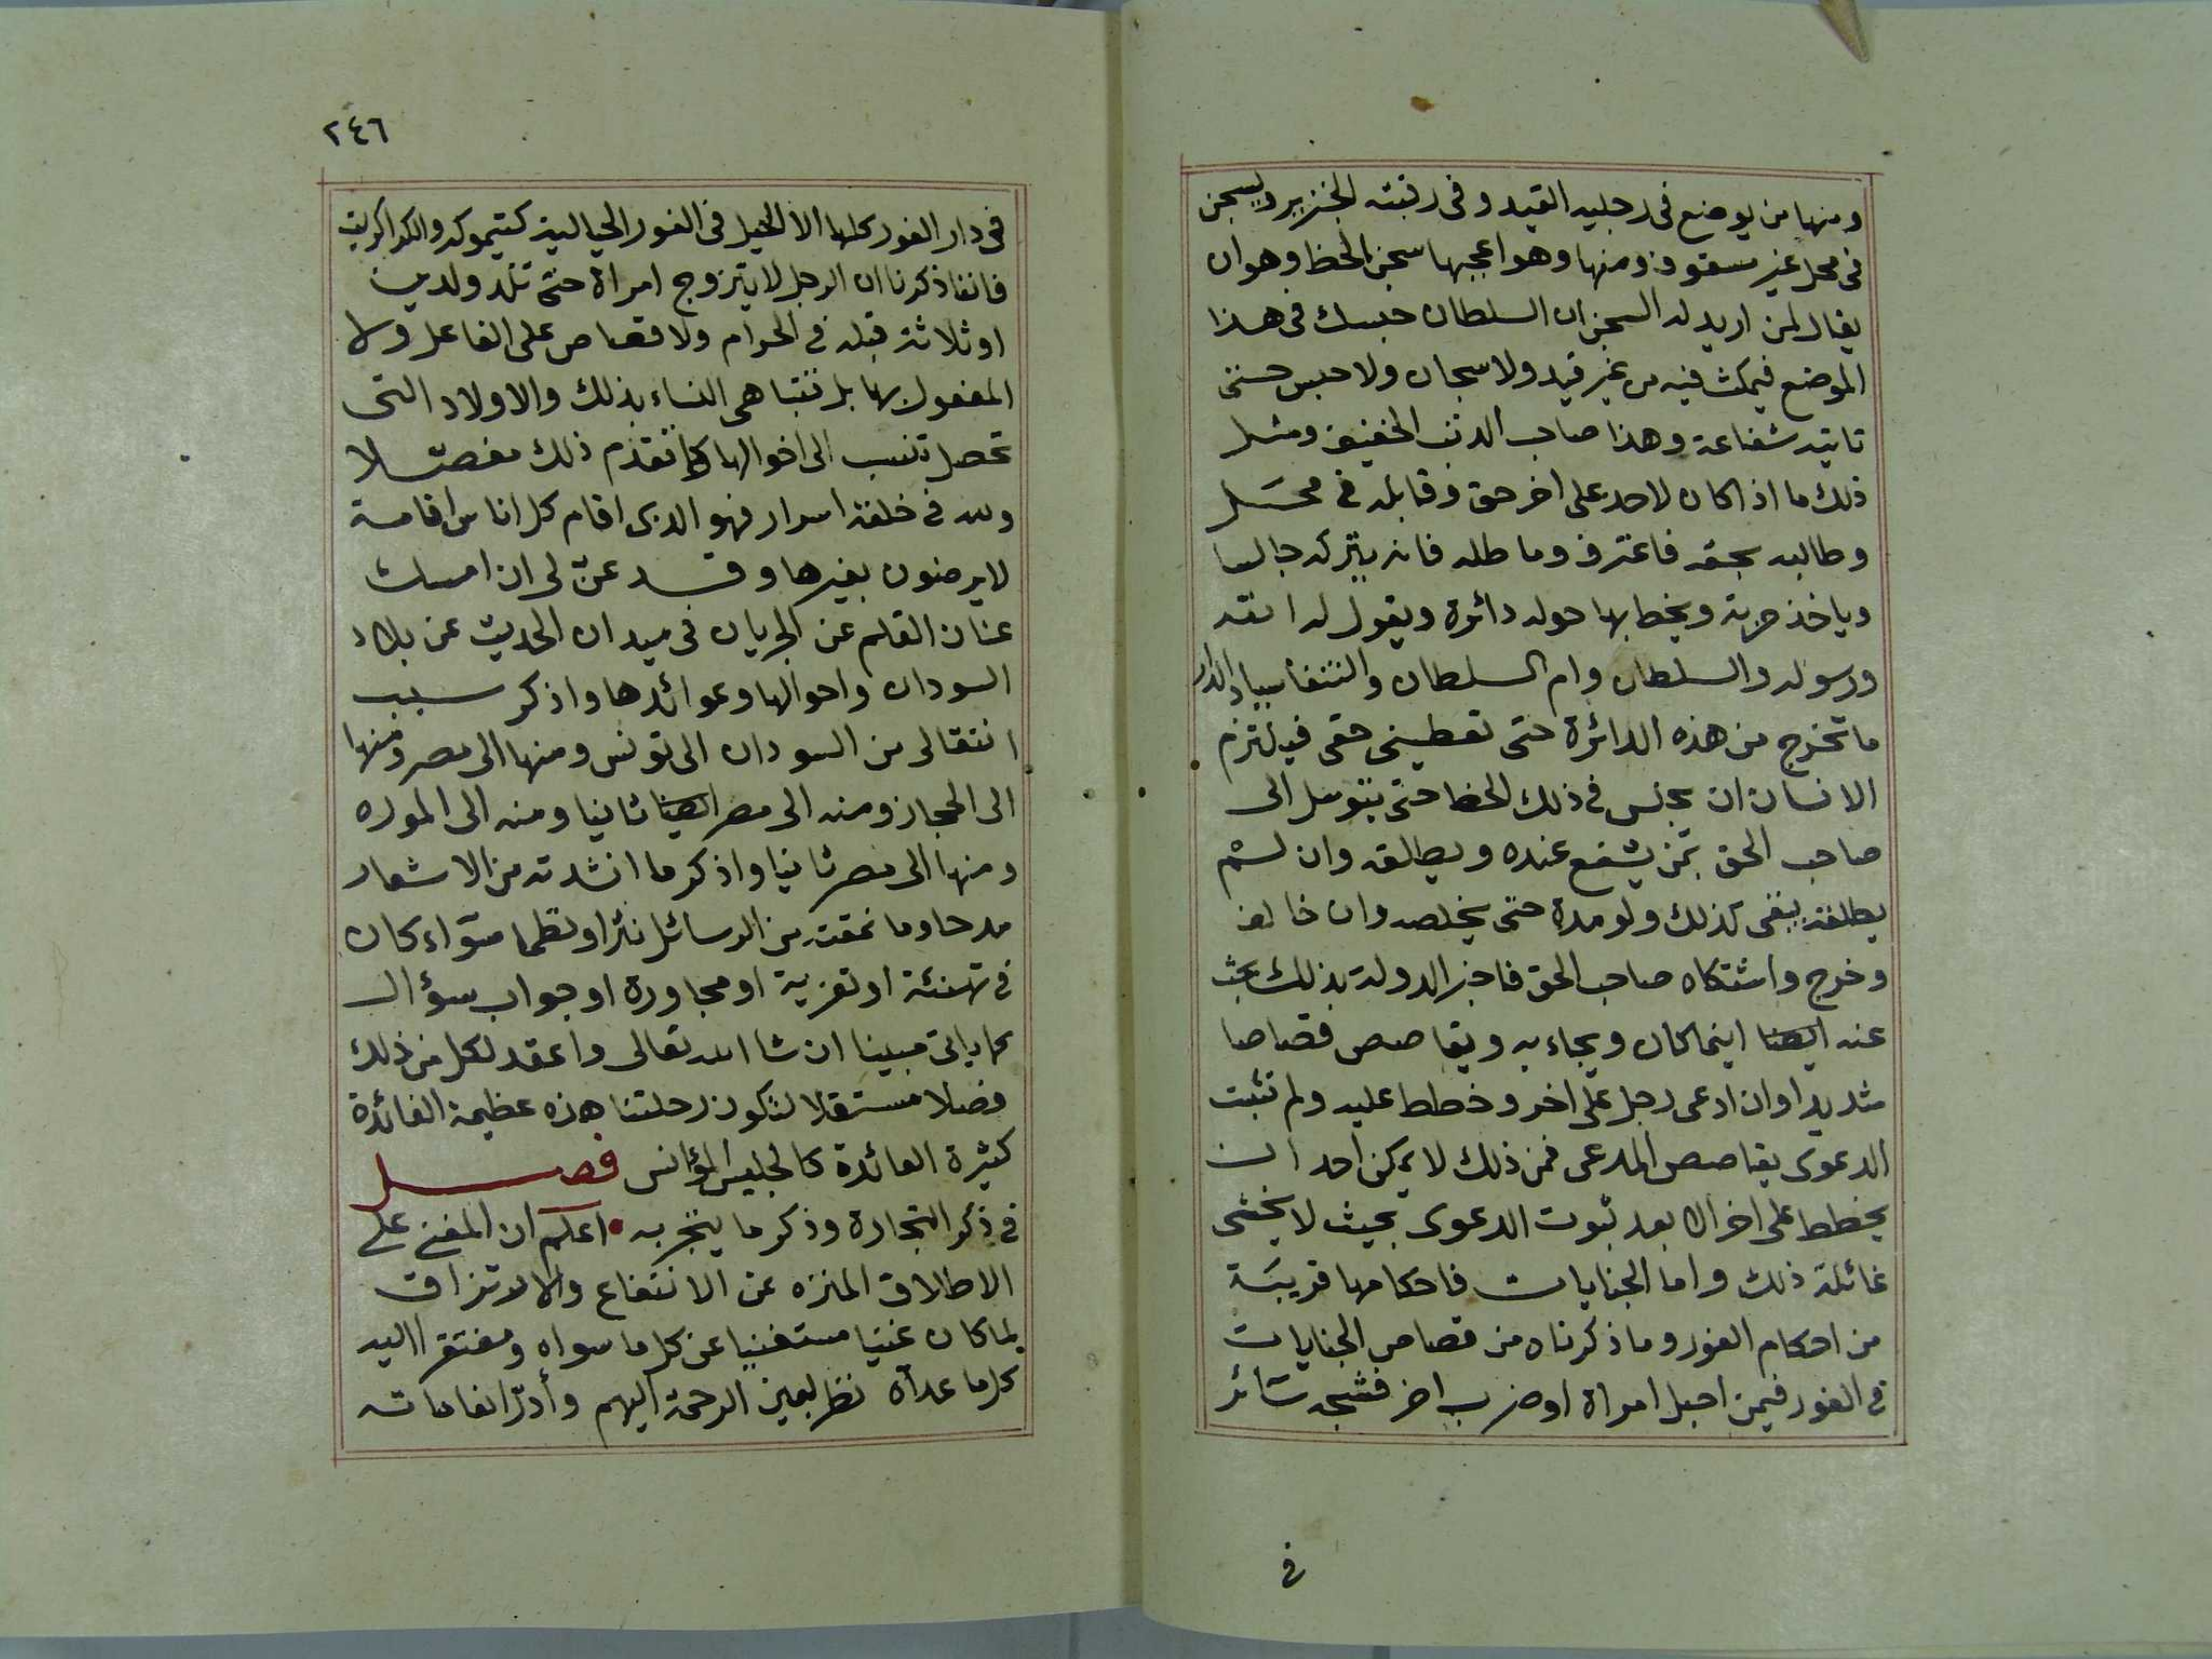 ومنها من يوضع فى رجليه القيد وفى رقبته الجنزير ويسجن
فى محل غير مسقوف ومنها وهو اعجبها سجن الخط وهو ان
يقال لمن اريد له السجن ان السلطان حبسك فى هذا
الموضع فيمكث فيه من غير قيد ولا سجان ولا حبس حتى
تاتيه شفاعة وهذا صاحب الذنب الخفيف ومثل
ذلك ما اذا كان لاحد على اخر حق وقابله فى محل
وطالبه بحقه فاعترف وماطله فانه يتركه جالسا
وياخذ حربة ويخط بها حوله دائرة ويقول له الله
ورسوله والسلطان وام السلطان والدار
ما تخرج من هذه الدائرة حتى تعطينى حقى فيلتزم
الانسان ان يجلس فى ذلك الخط حتى يتوسل الى
صاحب الحق بمن يشفع عنده ويطلقه وان لم
يطلقه يبقى كذلك ولو مدة حتى يخلصه وان خالف
وخرج واشتكاه صاحب الحق فاخبر الدولة بذلك بحث
عنه ايضا اينما كان ويجاء به ويقاصص قصاصا
شديدا وان ادعى رجل على اخر وخطط عليه ولم تثبت
الدعوى يقاصص المدعى فمن ذلك لا يمكن احد ان
يخطط على اخر الا بعد ثبوت الدعوى بحيث لا يخشى
غائلة ذلك واما الجنايات فاحكامها قريبة
من احكام الفور وما ذكرناه من قصاص الجنايات
فى الفور فيمن احبل امراة او ضرب اخر فشجه سائر
فى
٢٤٦
فى دار الفور كلها الا القليل فى الفور الجبالية كتيموكه والكراكريت
فاننا ذكرنا ان الرجل لا يتزوج امراة حتى تلد ولدين
او ثلاثة قبله فى الحرام ولا قصاص على الفاعل ولا
المفعول بها بل تتباهى النساء بذلك والاولاد التى
تحصل تنسب الى اخوالها كما تقدم ذلك مفصلا
ولله فى خلقه اسرار فهو الذى اقام كل اناس اقامة
لا يرضون بغيرها وقد عنّ لى ان امسك
عنان القلم عن الجريان فى ميدان الحديث عن بلاد
السودان واحوالها وعوائدها واذكر سبب
انتقالى من السودان الى تونس ومنها الى مصر ومنها
الى الحجاز ومنه الى مصر ايضا ثانيا ومنه الى الموره
ومنها الى مصر ثانيا واذكر ما انشدته من الاشعار
مدحا وما نمقته من الرسائل نثرا ونظما سواء كان
فى تهنئة او تعزية او مجاورة او جواب سؤال
كما ياتى مبينا ان شا الله تعالى واعقد لكل من ذلك
فصلا مستقلا لتكون رحلتنا هذه عظيمة الفائدة
كثيرة العائدة كالجليس المؤانس فصل
فى ذكر التجارة وذكر ما يتجر به اعلم ان المغنى على
الاطلاق المنزه عن الانتفاع والارتزاق
لما كان غنيا مستغنيا عن كل ما سواه ومفتقر اليه
كل ما عداه نظر بعين الرحمة اليهم وأدرّ انعاماته